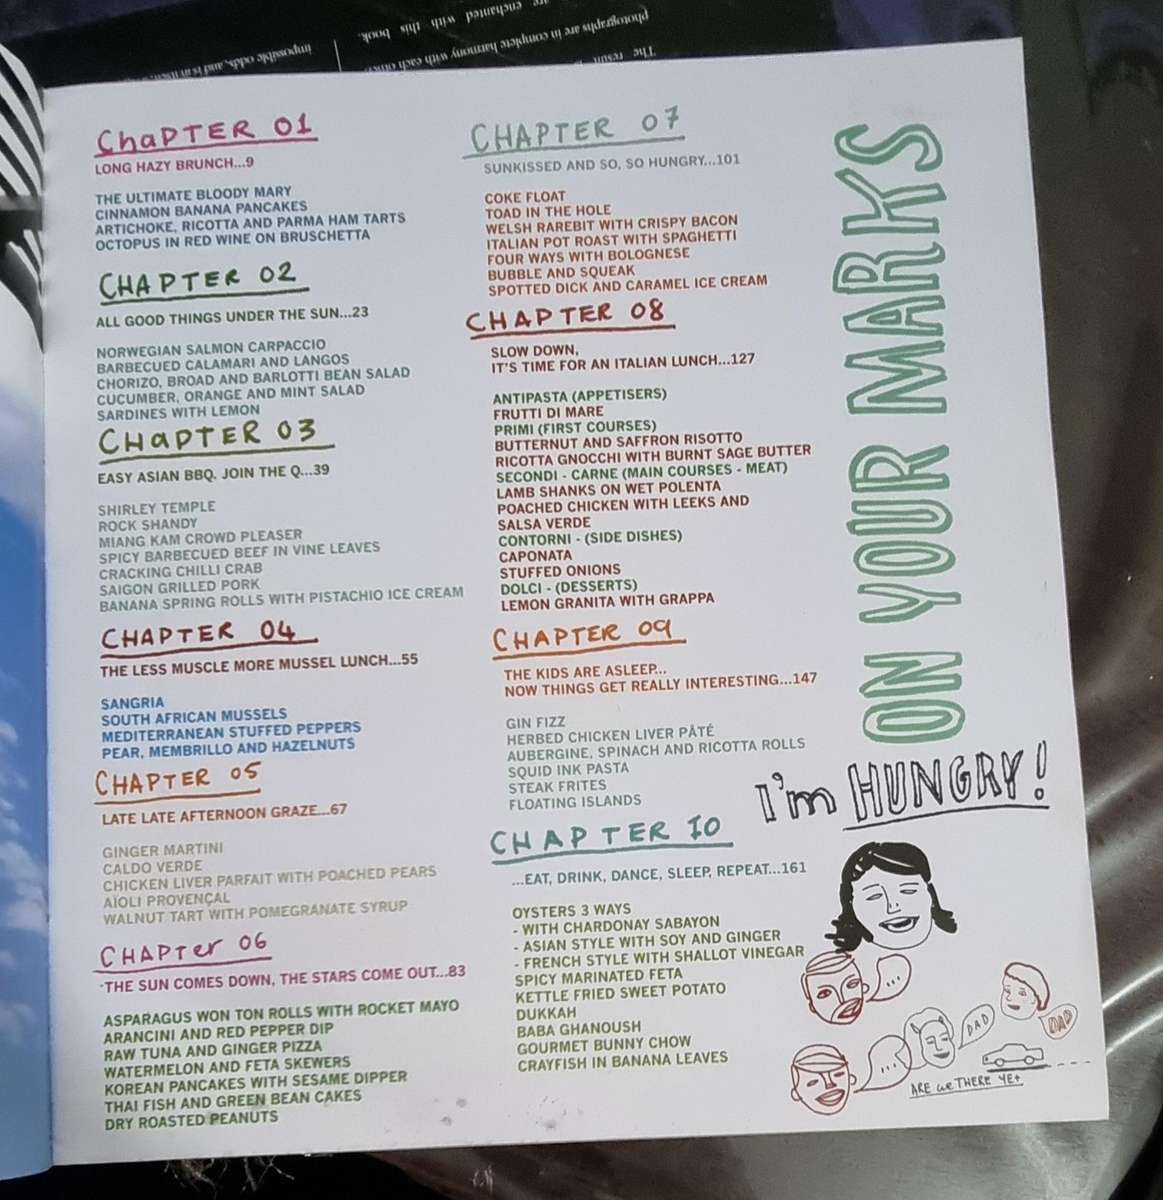 are enchanted with this book.
photographs are in complete harmony with each other
The
impossible odds, and is in itself
ChaPTER 01
LONG HAZY BRUNCH...9
THE ULTIMATE BLOODY MARY
CINNAMON BANANA PANCAKES
ARTICHOKE, RICOTTA AND PARMA HAM TARTS
OCTOPUS IN RED WINE ON BRUSCHETTA
CHAPTER 02
ALL GOOD THINGS UNDER THE SUN...23
NORWEGIAN SALMON CARPACCIO
BARBECUED CALAMARI AND LANGOS
CHORIZO, BROAD AND BARLOTTI BEAN SALAD
CUCUMBER, ORANGE AND MINT SALAD
SARDINES WITH LEMON
CHaPTER 03
EASY ASIAN BBQ. JOIN THE Q...39
SHIRLEY TEMPLE
ROCK SHANDY
MIANG KAM CROWD PLEASER
SPICY BARBECUED BEEF IN VINE LEAVES
CRACKING CHILLI CRAB
SAIGON GRILLED PORK
BANANA SPRING ROLLS WITH PISTACHIO ICE CREAM
CHAPTER 04
THE LESS MUSCLE MORE MUSSEL LUNCH...55
SANGRIA
SOUTH AFRICAN MUSSELS
MEDITERRANEAN STUFFED PEPPERS
PEAR, MEMBRILLO AND HAZELNUTS
CHAPTER 05
LATE LATE AFTERNOON GRAZE...67
GINGER MARTINI
CALDO VERDE
CHICKEN LIVER PARFAIT WITH POACHED PEARS
AÏOLI PROVENÇAL
WALNUT TART WITH POMEGRANATE SYRUP
CHAPTer 06
THE SUN COMES DOWN, THE STARS COME OUT...83
ASPARAGUS WON TON ROLLS WITH ROCKET MAYO
ARANCINI AND RED PEPPER DIP
RAW TUNA AND GINGER PIZZA
WATERMELON AND FETA SKEWERS
KOREAN PANCAKES WITH SESAME DIPPER
THAI FISH AND GREEN BEAN CAKES
DRY ROASTED PEANUTS
CHAPTER 07
SUNKISSED AND SO, SO HUNGRY...101
COKE FLOAT
TOAD IN THE HOLE
WELSH RAREBIT WITH CRISPY BACON
ITALIAN POT ROAST WITH SPAGHETTI
FOUR WAYS WITH BOLOGNESE
BUBBLE AND SQUEAK
SPOTTED DICK AND CARAMEL ICE CREAM
CHAPTER 08
SLOW DOWN,
IT'S TIME FOR AN ITALIAN LUNCH...127
ANTIPASTA (APPETISERS)
FRUTTI DI MARE
PRIMI (FIRST COURSES)
BUTTERNUT AND SAFFRON RISOTTO
RICOTTA GNOCCHI WITH BURNT SAGE BUTTER
SECONDI - CARNE (MAIN COURSES - MEAT)
LAMB SHANKS ON WET POLENTA
POACHED CHICKEN WITH LEEKS AND
SALSA VERDE
CONTORNI - (SIDE DISHES)
CAPONATA
STUFFED ONIONS
DOLCI - (DESSERTS)
LEMON GRANITA WITH GRAPPA
CHAPTER 09
THE KIDS ARE ASLEEP...
NOW THINGS GET REALLY INTERESTING...147
GIN FIZZ
HERBED CHICKEN LIVER PÂTÉ
AUBERGINE, SPINACH AND RICOTTA ROLLS
SQUID INK PASTA
STEAK FRITES
FLOATING ISLANDS
CHAPTER 10
...EAT, DRINK, DANCE, SLEEP, REPEAT...161
OYSTERS 3 WAYS
- WITH CHARDONAY SABAYON
- ASIAN STYLE WITH SOY AND GINGER
- FRENCH STYLE WITH SHALLOT VINEGAR
SPICY MARINATED FETA
KETTLE FRIED SWEET POTATO
DUKKAH
BABA GHANOUSH
GOURMET BUNNY CHOW
CRAYFISH IN BANANA LEAVES
ON YOUR MARKS
I'm HUNGRY!
...
DAD
DAD
...
ARE we THERE YEt